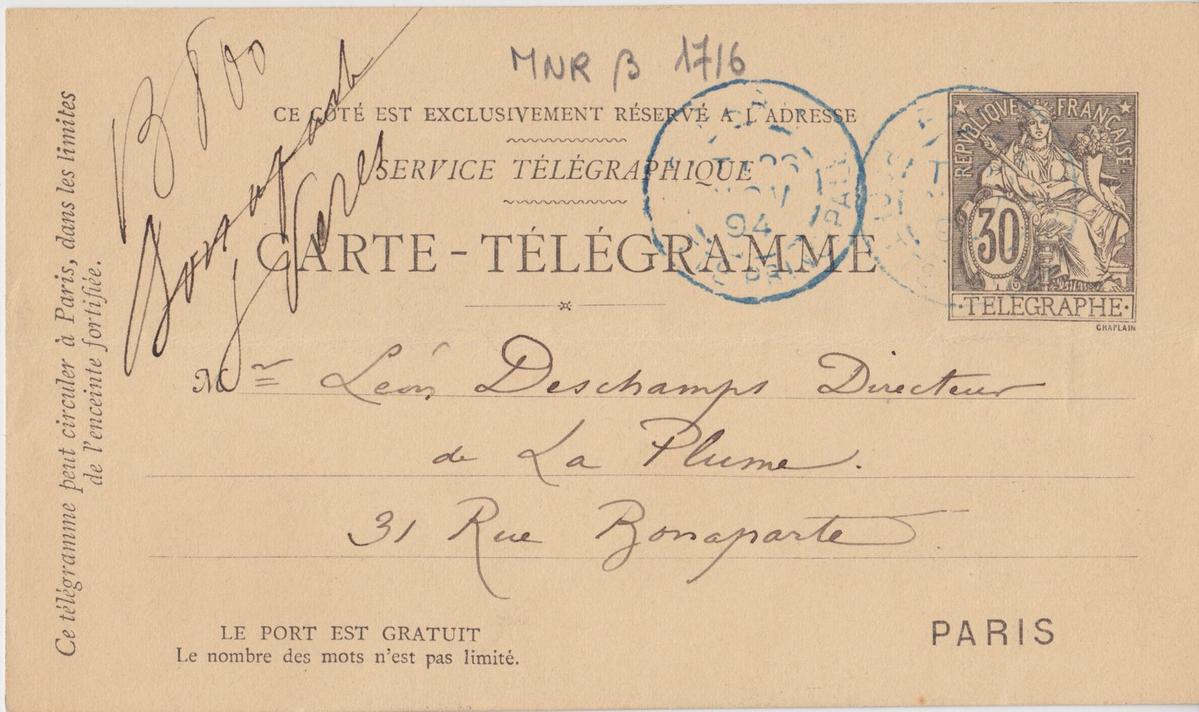 MNR β 1716
CE CÔTÉ EST EXCLUSIVEMENT RÉSERVÉ A L'ADRESSE
SERVICE TÉLÉGRAPHIQUE
CARTE-TÉLÉGRAMME
RÉPUBLIQUE FRANÇAISE
30
TÉLÉGRAPHE
CHAPLAIN
94
Mr Léon Deschamps Directeur
de La Plume.
31 Rue Bonaparte
LE PORT EST GRATUIT
Le nombre des mots n'est pas limité.
PARIS
Ce télégramme peut circuler à Paris, dans les limites
de l'enceinte fortifiée.